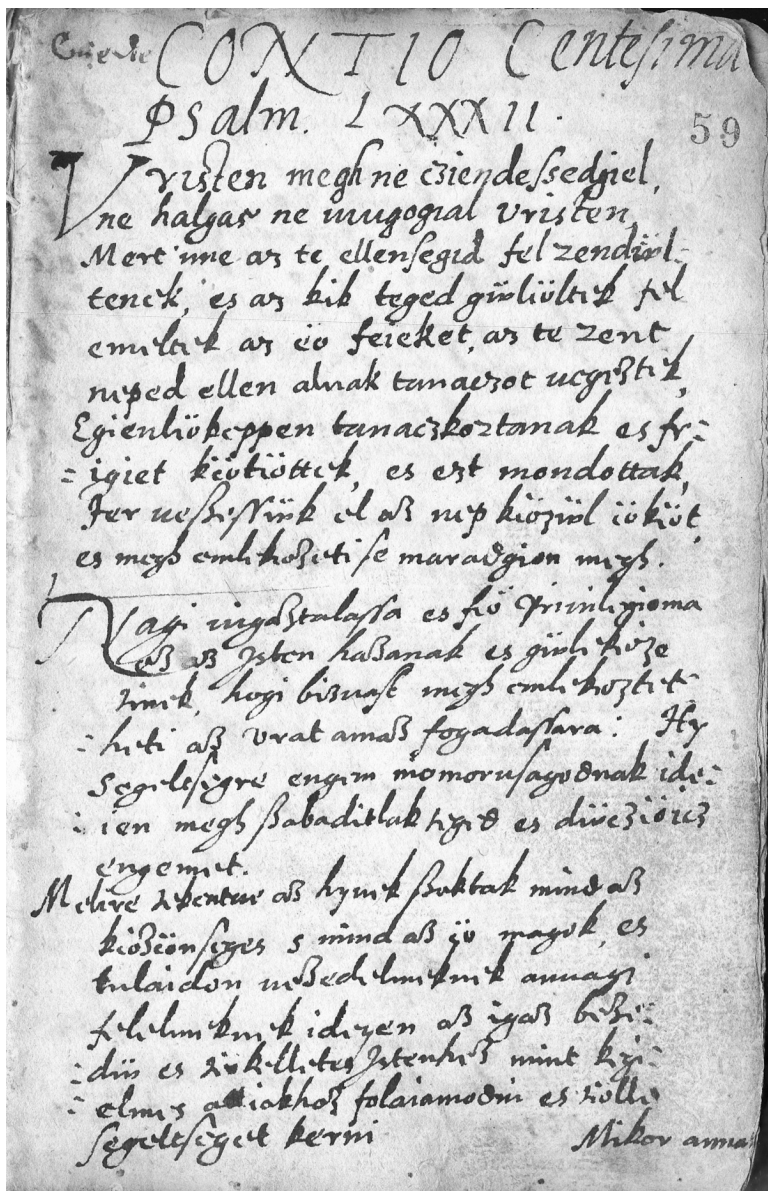 CONTIO Centesima
Psalm. LXXXII.
59
Vristen megh ne cziendessedgiel,
ne halgas ne niugogial Vristen,
Mert ime az te ellensegid fel zendwl-
tenek, es az kik teged gÿwlöltek fel
emeltek az eö feieket, az te zent
neped ellen alnak tanaczot vegeztek,
Egienliökeppen tanaczkoztanak es fr:
:igiet kiötiöttek, es ezt mondottak,
Jer veszessiük el az nep kiöziwl iökiöt,
es megh emlekezeti se maradgion megh.
Nagi vigaztalassa es fiö Priuilegioma
ez az Isten hazanak es giwlekeze
tinek, hogi bizuast megh emlekeztet:
:heti az Vrat amaz fogadassara: Hy
Segeltsegre engem niomorusagodnak ide:
:ien megh szabaditlak teged es diiczöicz
engemet.
Melire tekentue az hyuek szoktak mind az
kiöziönseges s mind az iö magok, es
tulaidon veszedelmeknek auuagi
felelmeknek ideyen az igaz besze:
:dü es tökelletes Istenhez mint kegi:
:elmes attiakhoz folaiamodni es tiölle
segeltseget kerni
Mikor anna